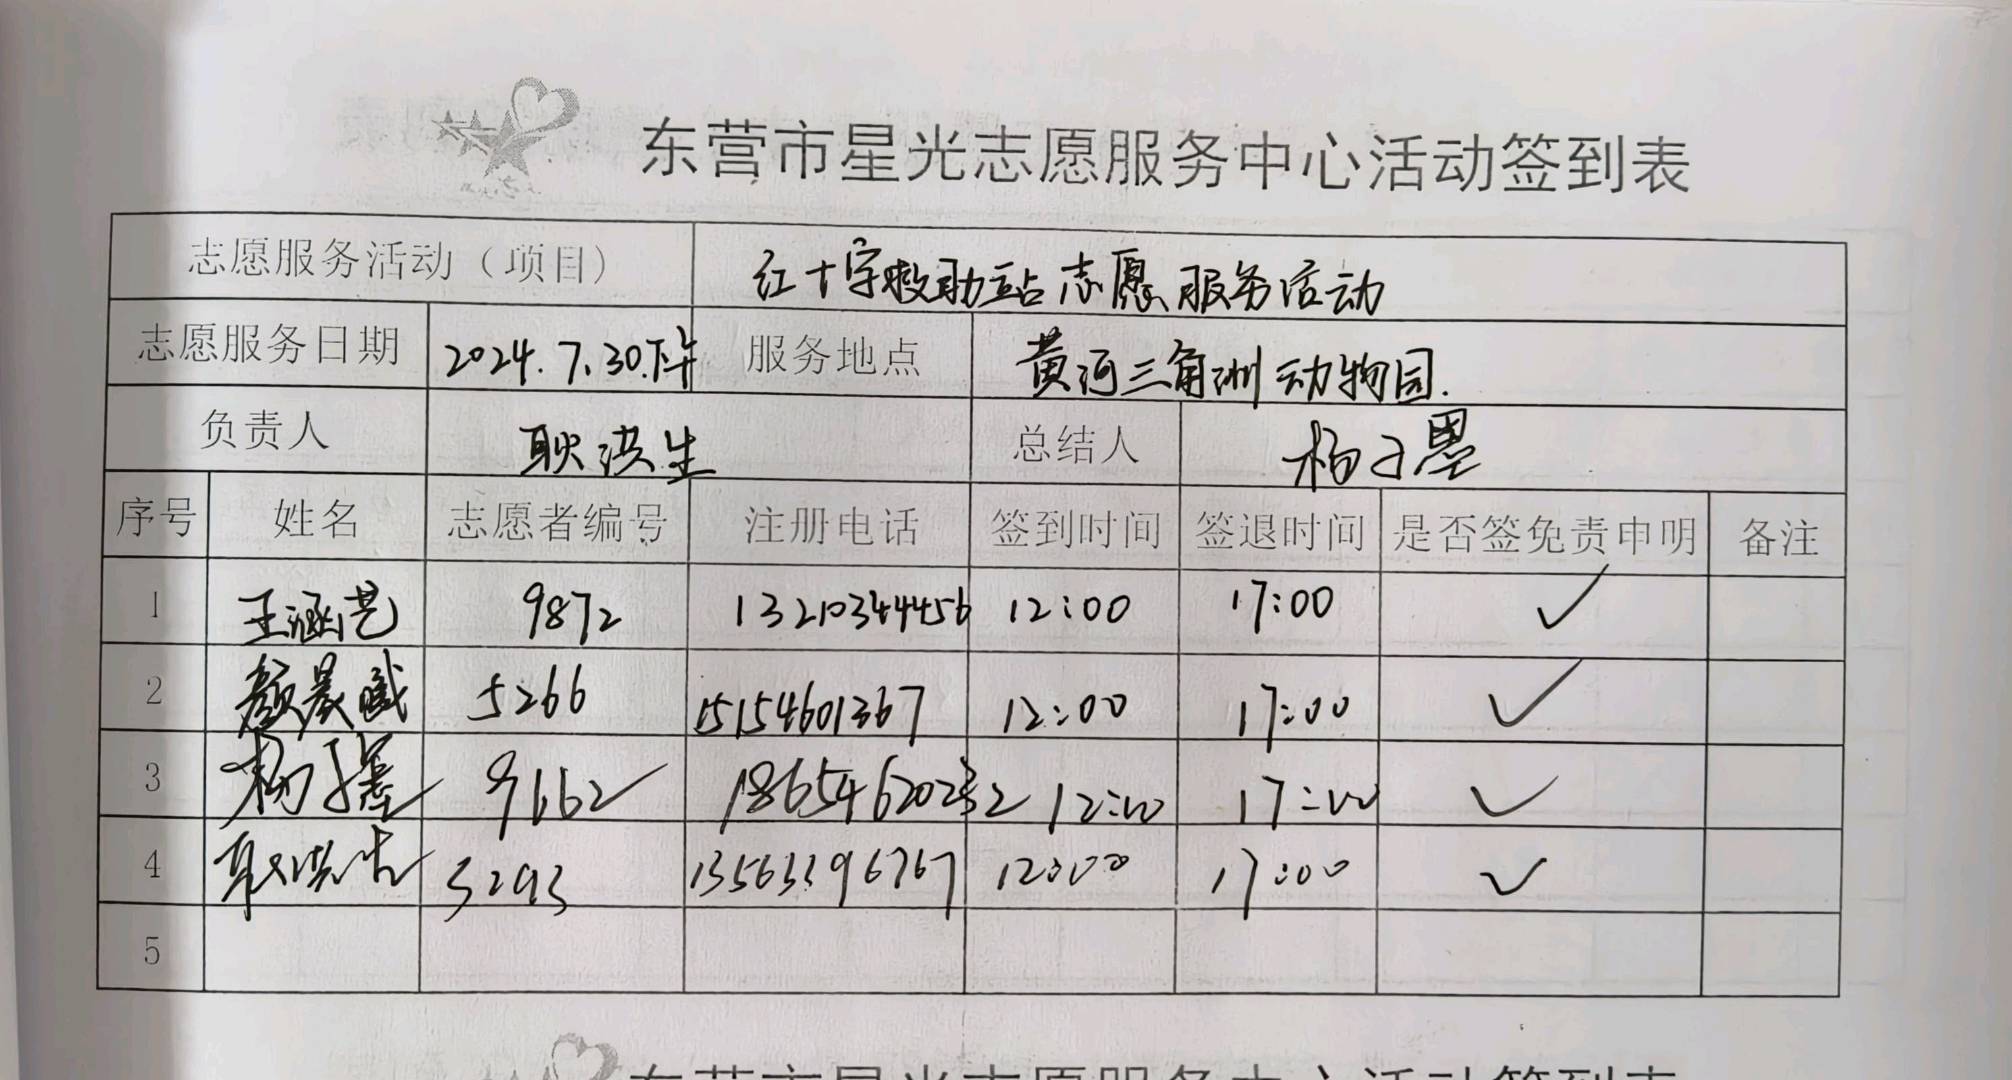 东营市星光志愿服务中心活动签到表
志愿服务活动（项目） 红十字救助站志愿服务活动
志愿服务日期 2024.7.30.下午 服务地点 黄河三角洲动物园.
负责人 耿洪生 总结人 杨子墨
序号 姓名 志愿者编号 注册电话 签到时间 签退时间 是否签免责申明 备注
1 王涵艺 9872 13210344456 12:00 17:00 ✓
2 颜晨曦 5266 15154601367 12:00 17:00 ✓
3 杨子墨 9162 12:00 17:00 ✓
4 耿洪生 5293 13563396767 12:00 17:00 ✓
5
东营市星光志愿服务中心活动签到表